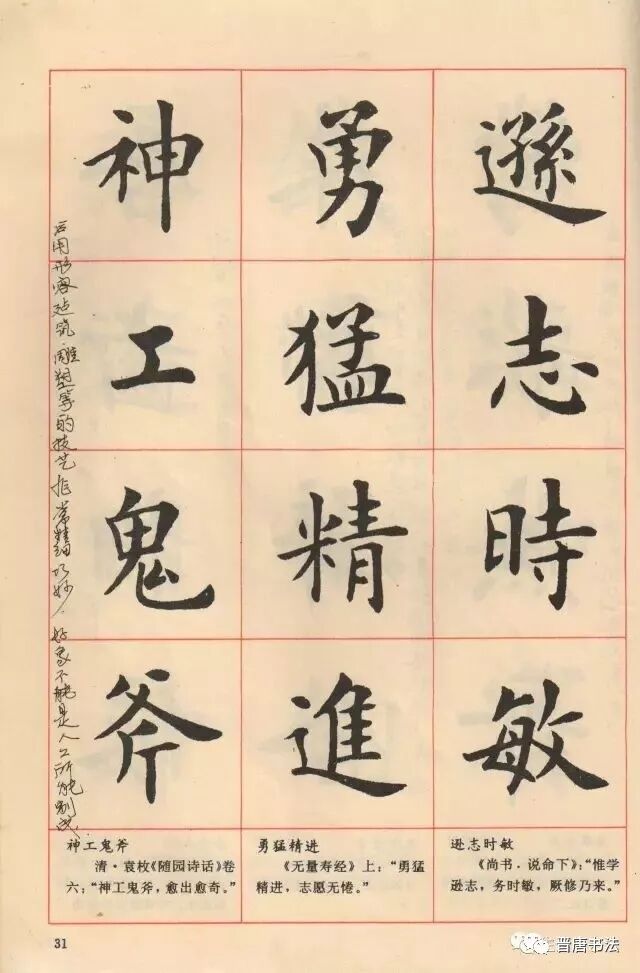 遜志時敏
勇猛精進
神工鬼斧
后用形容建筑、雕塑等的技艺非常精细巧妙,好象不能是人工所能制成.
神工鬼斧
清·袁枚《随园诗话》卷
六:“神工鬼斧,愈出愈奇。”
勇猛精进
《无量寿经》上:“勇猛
精进,志愿无倦。”
逊志时敏
《尚书·说命下》:“惟学
逊志,务时敏,厥修乃来。”
31
晋唐书法